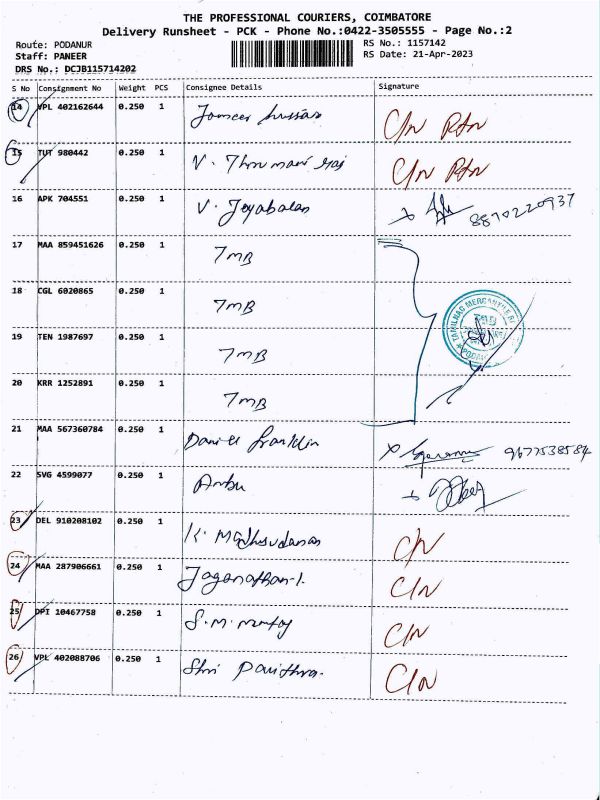 THE PROFESSIONAL COURIERS, COIMBATORE
Delivery Runsheet - PCK - Phone No.:0422-3505555 - Page No.:2
Route: PODANUR RS No.: 1157142
Staff: PANEER RS Date: 21-Apr-2023
DRS No.: DCJB115714202
S No Consignment No Weight PCS Consignee Details Signature
14 VPL 402162644 0.250 1 Jameer hussan C/N Rtn
15 TUT 980442 0.250 1 V. C/N Rtn
16 APK 704551 0.250 1 V. Jeyabalan 8870220937
17 MAA 859451626 0.250 1 TMB
18 CGL 6020865 0.250 1 TMB
TAMILNAD MERCANTILE
19 TEN 1987697 0.250 1 TMB
20 KRR 1252891 0.250 1 TMB
21 MAA 567360784 0.250 1 Daniel franklin 9677538584
22 SVG 4599077 0.250 1 Anbu
23 DEL 910208102 0.250 1 K. Madhusudanan C/N
24 MAA 287906661 0.250 1 Jaganathan.L C/N
25 DPI 10467758 0.250 1 S.M. C/N
26 VPL 402088706 0.250 1 Shri Pavithra. C/N